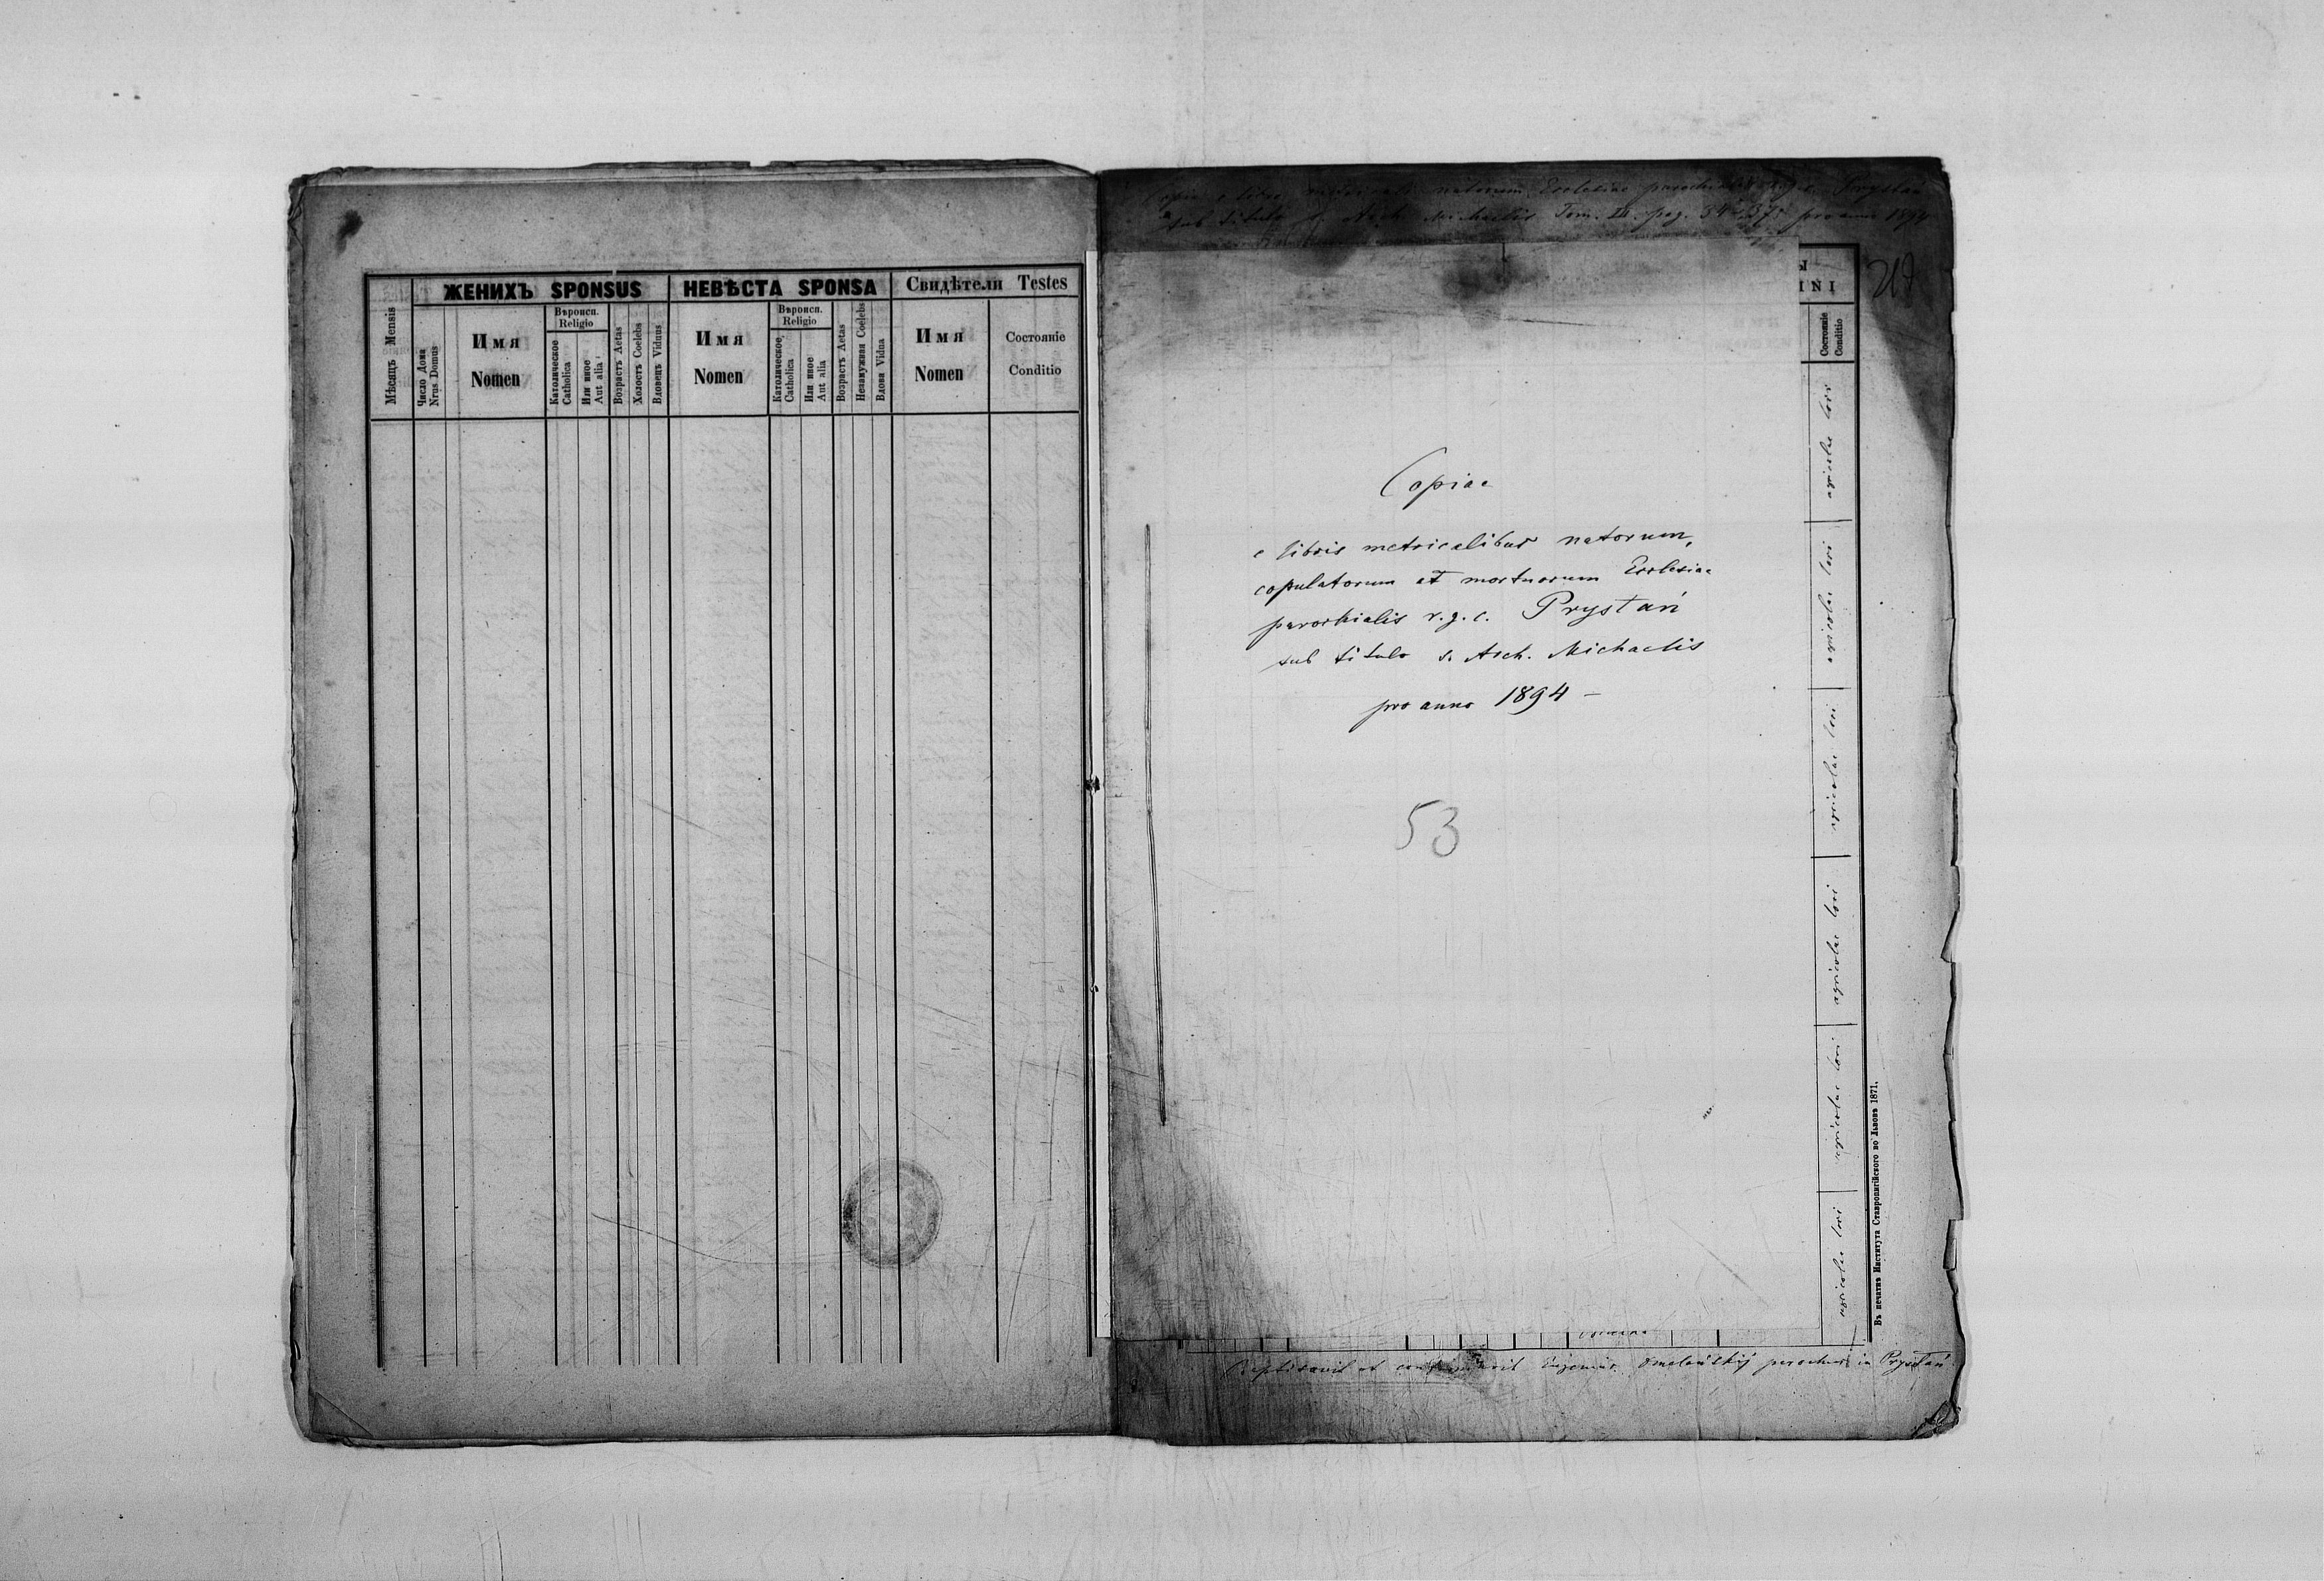 ЖЕНИХЪ SPONSUS
НЕВѢСТА SPONSA
Свидѣтели Testes
Мѣсяцъ Mensis
Число Дома
Nrus Domus
Имя
Nomen
Вѣроисп.
Religio
Католическое
Catholica
Или иное
Aut alia
Возрастъ Aetas
Холостъ Coelebs
Вдовецъ Viduus
Имя
Nomen
Вѣроисп.
Religio
Католическое
Catholica
Или иное
Aut alia
Возрастъ Aetas
Незамужняя Coelebs
Вдова Vidua
Имя
Nomen
Состояніе
Conditio
Copia e libro natorum Ecclesiae parochialis Prystań
sub titulo S. Arch. Michaelis Tom. III. pag. pro anno 1894
Copiae
e libris metricalibus natorum,
copulatorum et mortuorum Ecclesiae
parochialis r. g. c. Prystań
sub titulo S. Arch. Michaelis
pro anno 1894 –
53
Ы
INI
Состояніе
Conditio
agricolae loci
agricolae loci
agricolae loci
agricolae loci
agricolae loci
agricolae loci
Въ печатнѣ Института Ставропигійского во Львовѣ 1871.
Baptisavit et confirmavit Eugenius Omelańskij parochus in Prystań